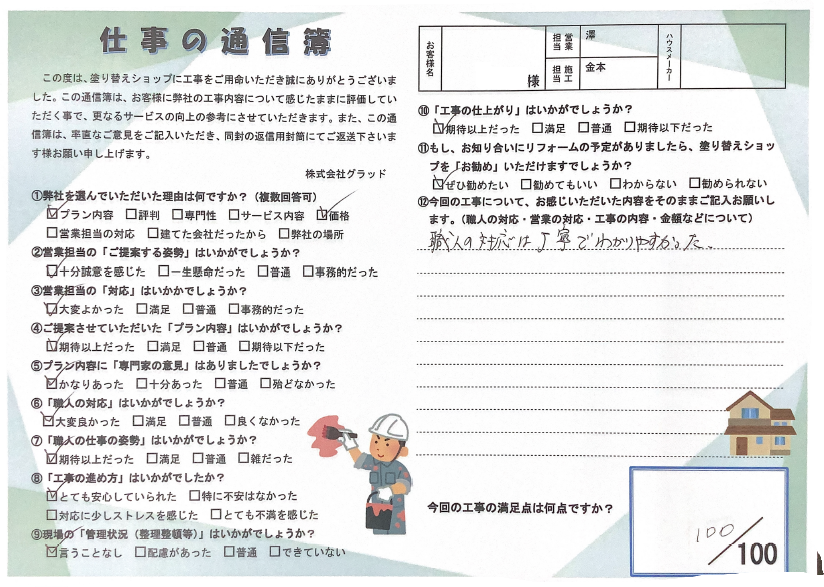 仕事の通信簿
この度は、塗り替えショップに工事をご用命いただき誠にありがとうございま
した。この通信簿は、お客様に弊社の工事内容について感じたままに評価してい
ただく事で、更なるサービスの向上の参考にさせていただきます。また、この通
信簿は、率直なご意見をご記入いただき、同封の返信用封筒にてご返送下さいま
す様お願い申し上げます。
株式会社グラッド
①弊社を選んでいただいた理由は何ですか？（複数回答可）
☑プラン内容 □評判 □専門性 □サービス内容 ☑価格
□営業担当の対応 □建てた会社だったから □弊社の場所
②営業担当の「ご提案する姿勢」はいかがでしょうか？
☑十分誠意を感じた □一生懸命だった □普通 □事務的だった
③営業担当の「対応」はいかかでしょうか？
☑大変よかった □満足 □普通 □事務的だった
④ご提案させていただいた「プラン内容」はいかがでしょうか？
☑期待以上だった □満足 □普通 □期待以下だった
⑤プラン内容に「専門家の意見」はありましたでしょうか？
☑かなりあった □十分あった □普通 □殆どなかった
⑥「職人の対応」はいかがでしょうか？
☑大変良かった □満足 □普通 □良くなかった
⑦「職人の仕事の姿勢」はいかがでしょうか？
☑期待以上だった □満足 □普通 □雑だった
⑧「工事の進め方」はいかがでしたか？
☑とても安心していられた □特に不安はなかった
□対応に少しストレスを感じた □とても不満を感じた
⑨現場の「管理状況（整理整頓等）」はいかがでしょうか？
☑言うことなし □配慮があった □普通 □できていない
お客様名 様 営業担当 澤 ハウスメーカー
施工担当 金本
⑩「工事の仕上がり」はいかがでしょうか？
☑期待以上だった □満足 □普通 □期待以下だった
⑪もし、お知り合いにリフォームの予定がありましたら、塗り替えショッ
プを「お勧め」いただけますでしょうか？
☑ぜひ勧めたい □勧めてもいい □わからない □勧められない
⑫今回の工事について、お感じいただいた内容をそのままご記入お願いし
ます。（職人の対応・営業の対応・工事の内容・金額などについて）
職人の対応は丁寧でわかりやすかった。
今回の工事の満足点は何点ですか？
100/100